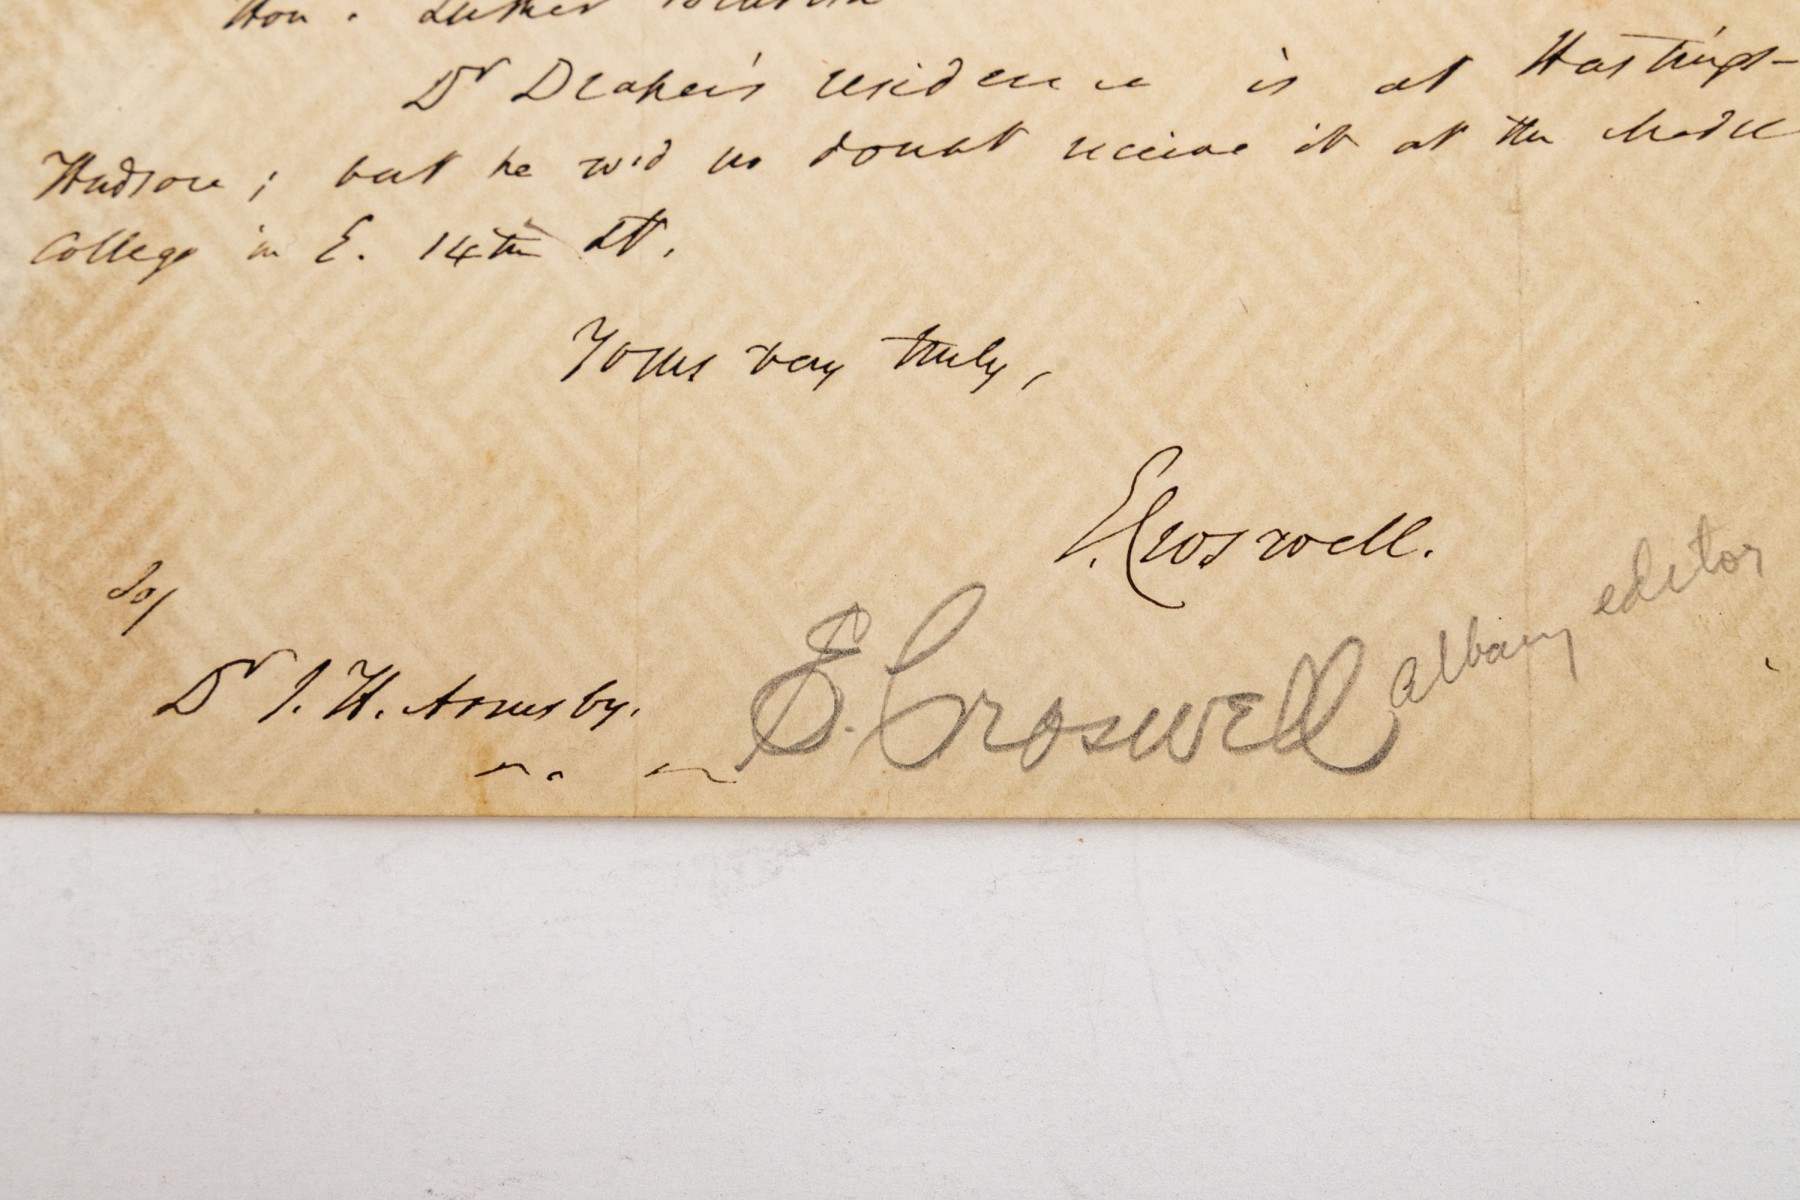 Hon. Luther
Dr Draper's residence is at Hastings-
Hudson; but he wd no doubt receive it at the Medic
College in E. 14th St.
Yours very truly,
E. Croswell.
Dr J. H. Armsby.
E. Croswell albany editor